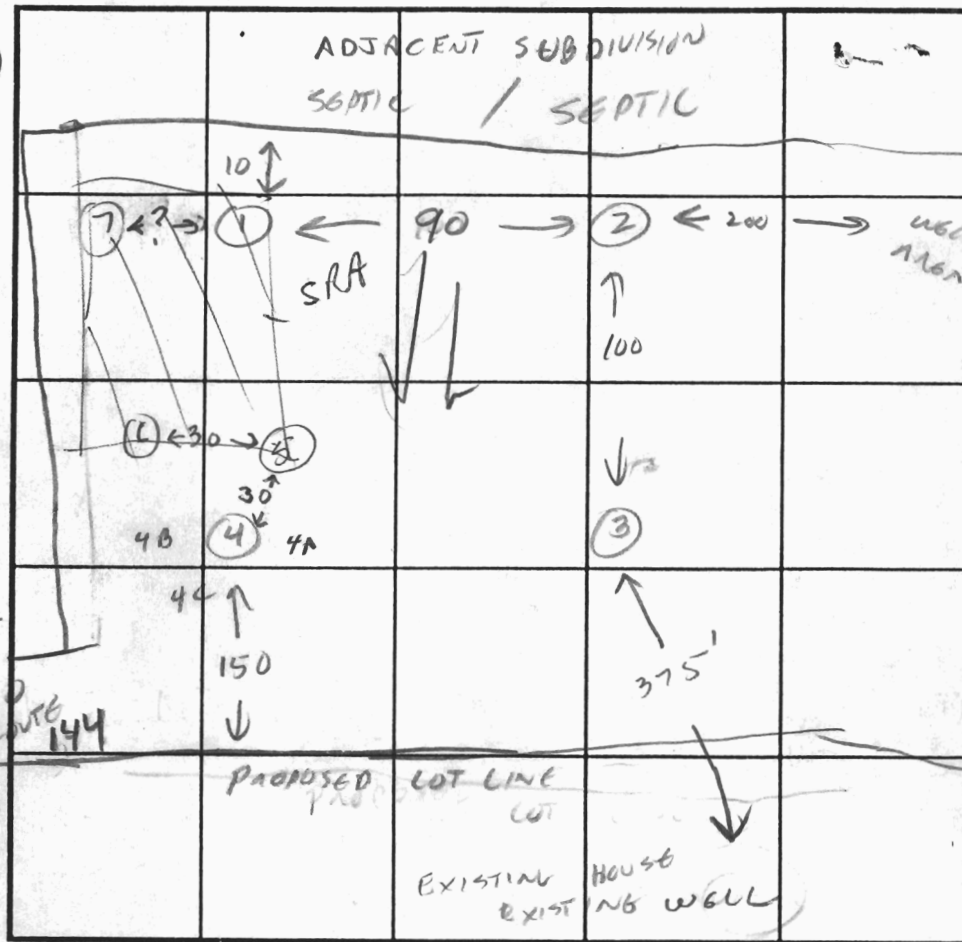 ADJACENT SUBDIVISION
SEPTIC / SEPTIC
10
7 ? 1 90 2 200
SRA
100
30
30
4B 4 4A 3
4C
150
375'
144
PROPOSED LOT LINE
LOT
EXISTING HOUSE
EXISTING WELL